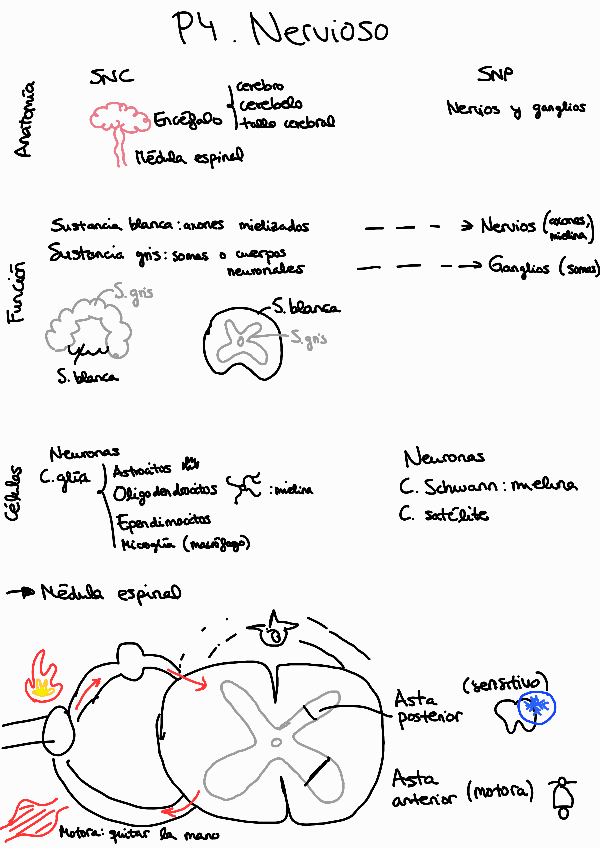 P4. Nervioso
Anatomía
SNC
SNP
Encéfalo
cerebro
cerebelo
tallo cerebral
Médula espinal
Nervios y ganglios
Función
Sustancia blanca: axones mielizados
Nervios (axones, mielina)
Sustancia gris: somas o cuerpos
neuronales
Ganglios (somas)
S. gris
S. blanca
S. blanca
S. gris
Células
Neuronas
C. glía
Astrocitos
Oligodendrocitos
: mielina
Ependimocitos
Microglía (macrófago)
Neuronas
C. Schwann: mielina
C. satélite
Médula espinal
Asta
posterior
(sensitivo)
Asta
anterior (motora)
Motora: quitar la mano